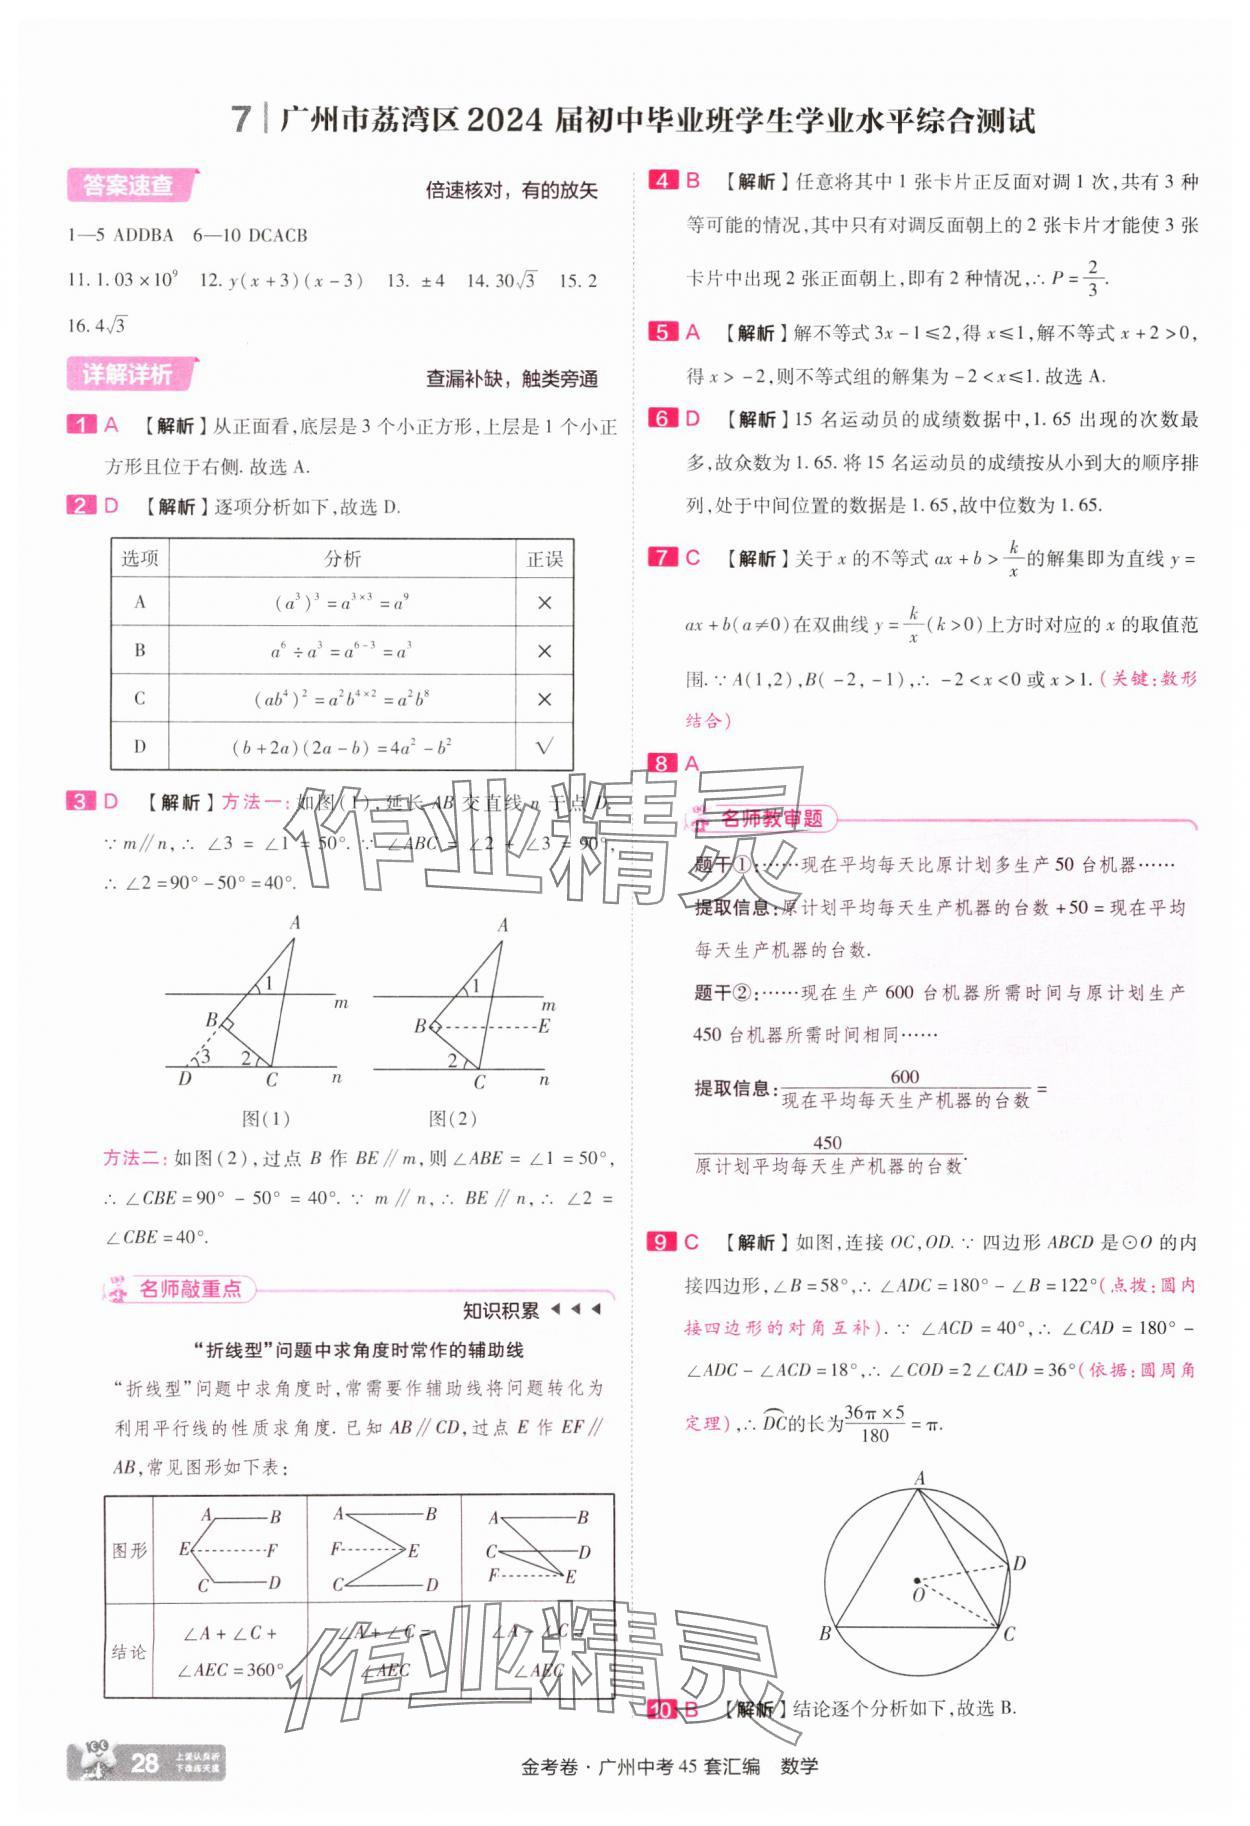 7 | 广州市荔湾区 2024 届初中毕业班学生学业水平综合测试
答案速查
倍速核对，有的放矢
1—5 ADDBA 6—10 DCACB
11. 1.03×10⁹ 12. y(x+3)(x-3) 13. ±4 14. 30√3 15. 2
16. 4√3
详解详析
查漏补缺，触类旁通
1 A 【解析】从正面看,底层是 3 个小正方形,上层是 1 个小正
方形且位于右侧. 故选 A.
2 D 【解析】逐项分析如下,故选 D.
选项 分析 正误
A (a³)³=a³ˣ³=a⁹ ×
B a⁶÷a³=a⁶⁻³=a³ ×
C (ab⁴)²=a²b⁴ˣ²=a²b⁸ ×
D (b+2a)(2a-b)=4a²-b² √
3 D 【解析】方法一:如图(1),延长 AB 交直线 n 于点 D.
∵ m∥n,∴ ∠3 = ∠1 = 50°. ∵ ∠ABC = ∠2 + ∠3 = 90°,
∴ ∠2=90°-50°=40°.
A
1
m
B
3
2
D
C
n
图(1)
A
1
m
B
E
2
C
n
图(2)
方法二:如图(2),过点 B 作 BE∥m,则∠ABE = ∠1 = 50°,
∴ ∠CBE = 90° - 50° = 40°. ∵ m∥n,∴ BE∥n,∴ ∠2 =
∠CBE=40°.
名师敲重点
知识积累 ◀ ◀ ◀
“折线型”问题中求角度时常作的辅助线
“折线型”问题中求角度时,常需要作辅助线将问题转化为
利用平行线的性质求角度. 已知 AB∥CD,过点 E 作 EF∥
AB,常见图形如下表:
图形
A B
E F
C D
A B
F E
C D
A B
C D
F E
结论
∠A+∠C+
∠AEC=360°
∠A+∠C=
∠AEC
∠A-∠C=
∠AEC
4 B 【解析】任意将其中 1 张卡片正反面对调 1 次,共有 3 种
等可能的情况,其中只有对调反面朝上的 2 张卡片才能使 3 张
卡片中出现 2 张正面朝上,即有 2 种情况,∴ P=2/3.
5 A 【解析】解不等式 3x-1≤2,得 x≤1,解不等式 x+2>0,
得 x>-2,则不等式组的解集为-2<x≤1. 故选 A.
6 D 【解析】15 名运动员的成绩数据中,1.65 出现的次数最
多,故众数为 1.65. 将 15 名运动员的成绩按从小到大的顺序排
列,处于中间位置的数据是 1.65,故中位数为 1.65.
7 C 【解析】关于 x 的不等式 ax+b>k/x的解集即为直线 y=
ax+b(a≠0)在双曲线 y=k/x(k>0)上方时对应的 x 的取值范
围. ∵ A(1,2),B(-2,-1),∴ -2<x<0 或 x>1.(关键:数形
结合)
8 A
名师教审题
题干①:……现在平均每天比原计划多生产 50 台机器……
提取信息:原计划平均每天生产机器的台数+50=现在平均
每天生产机器的台数.
题干②:……现在生产 600 台机器所需时间与原计划生产
450 台机器所需时间相同……
提取信息:600/现在平均每天生产机器的台数=
450/原计划平均每天生产机器的台数.
9 C 【解析】如图,连接 OC,OD. ∵ 四边形 ABCD 是⊙O 的内
接四边形,∠B=58°,∴ ∠ADC=180°-∠B=122°(点拨:圆内
接四边形的对角互补). ∵ ∠ACD = 40°,∴ ∠CAD = 180° -
∠ADC-∠ACD=18°,∴ ∠COD=2∠CAD=36°(依据:圆周角
定理),∴ DC⌒的长为36π×5/180=π.
A
D
O
B
C
10 B 【解析】结论逐个分析如下,故选 B.
28
金考卷·广州中考 45 套汇编 数学
作业精灵
作业精灵